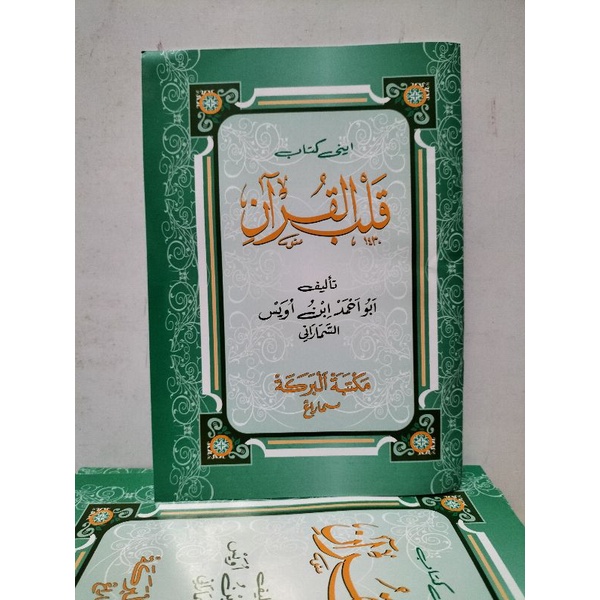 اينى كتاب
قَلْبُ القُرْآنِ
١٤٣٠
تأليف
اَبُو اَحْمَدْ اِبْنُ اُوَيْسْ
السَّمَارَانِي
مَكْتَبَة اَلْبَرَكَةْ
سمارانج